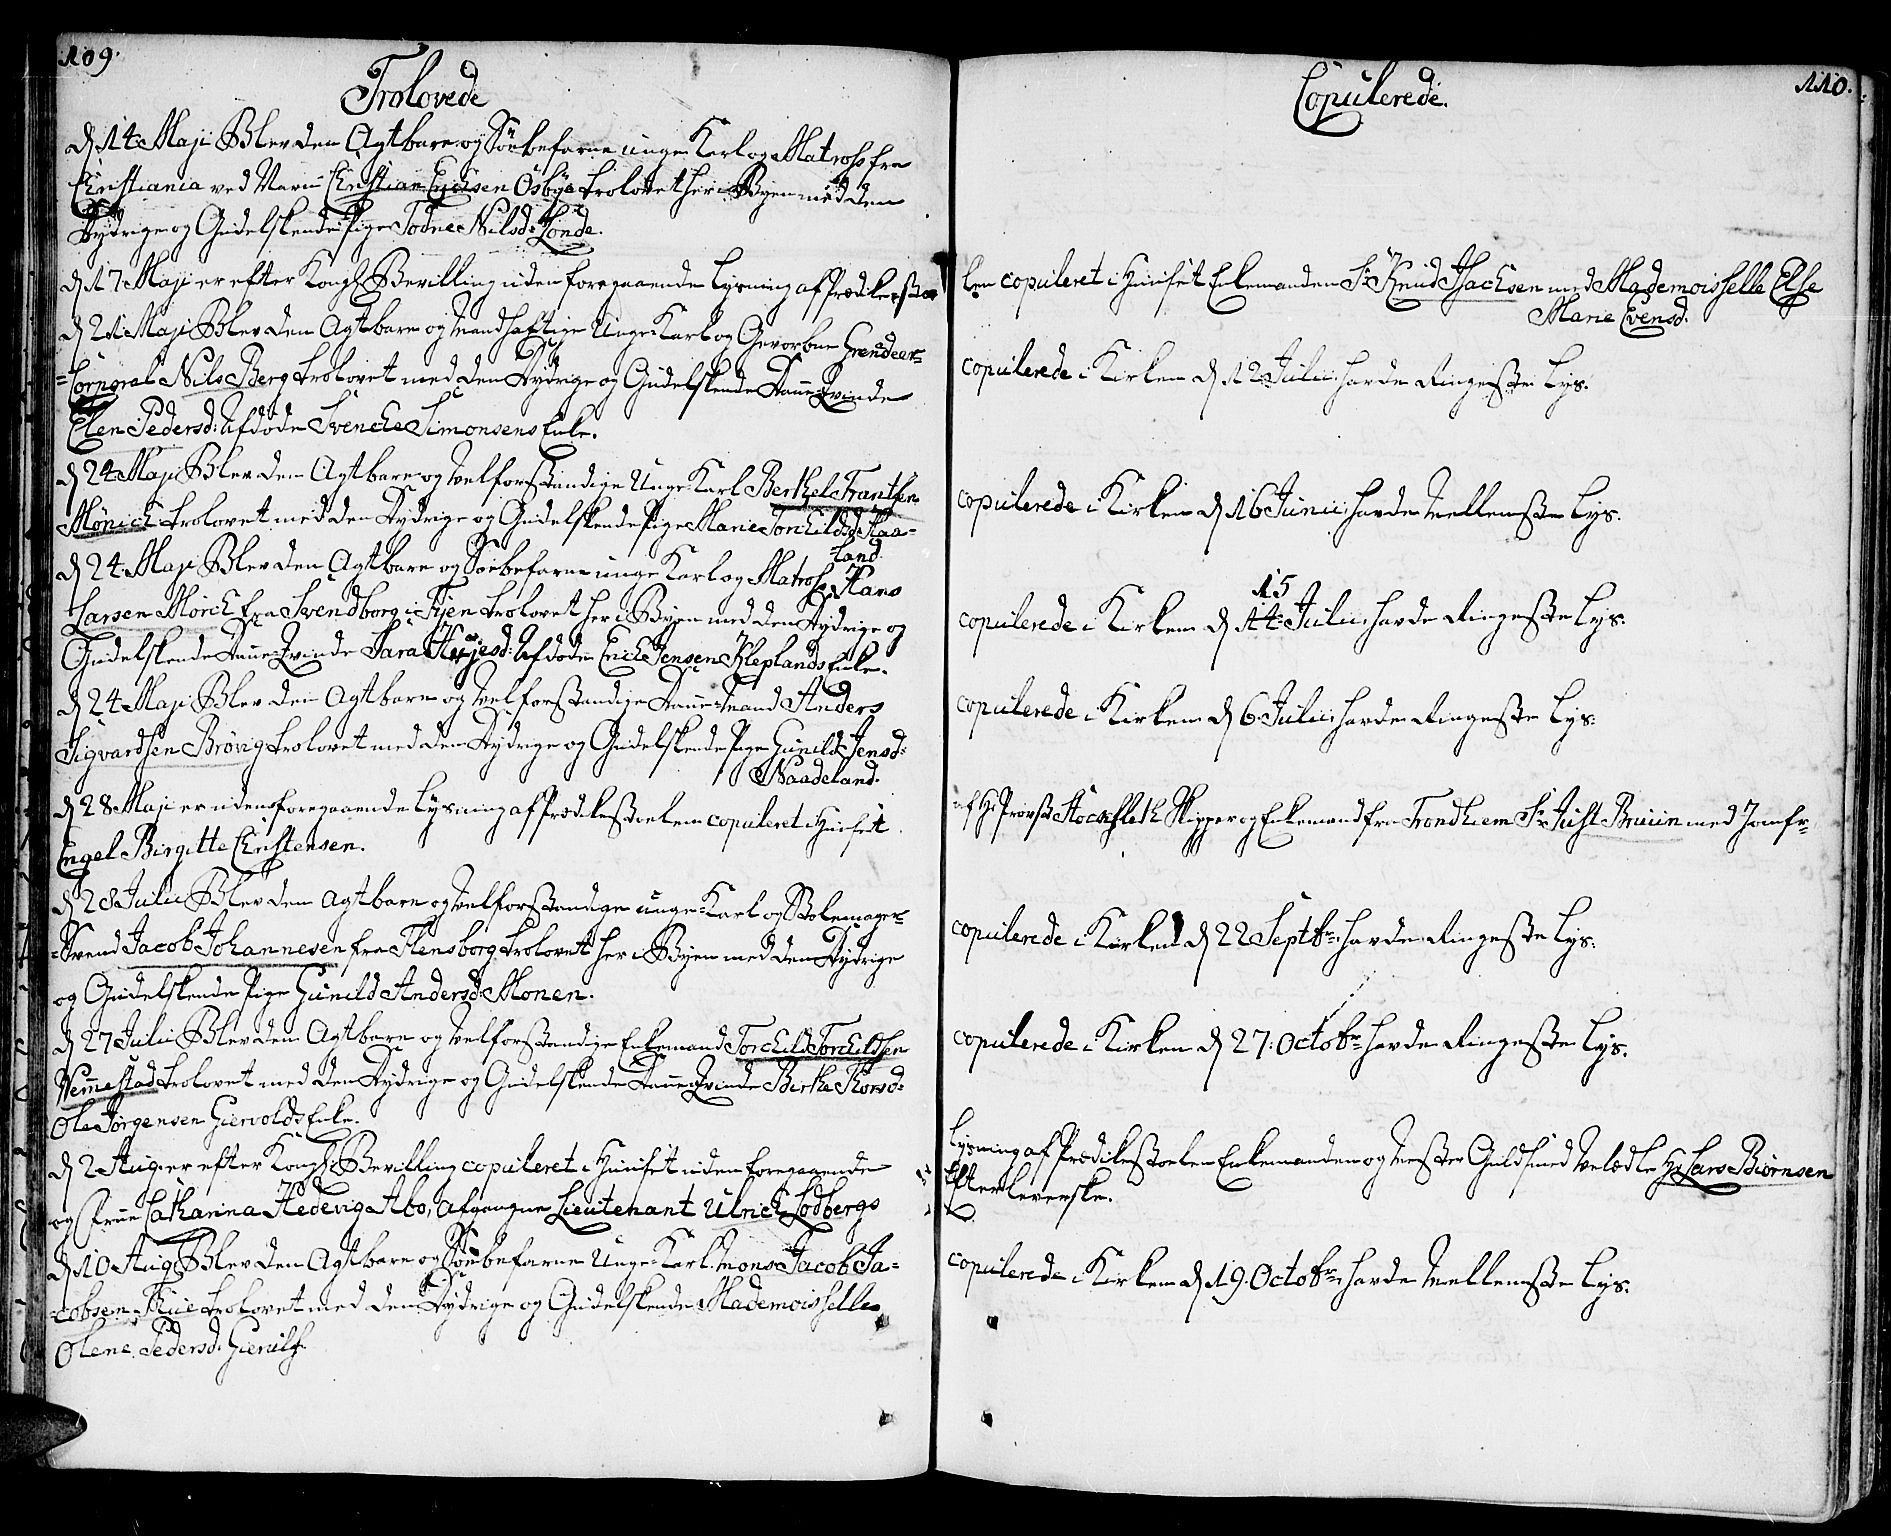 109.
Trolovede
D 14 Maji Blev den Agtbare og Søebefarne unge Karl og Matross fra
Christiania ved Navn Christian Erichsen Osbye trolovet her i Byen med den
Dydrige og Gudelskende Pige Todne Nilsd: Londe.
D 17 Maji er efter Kongl: Bevilling uden foregaaende Lysning af Prædikestoe
D 21 Maji Blev den Agtbare og Mandhaftige Unge Karl og Gevorbne Grenadeer-
-Corporal Nils Berg trolovet med den Dydrige og Gudelskende Danne Qvinde
Elen Pedersd: Afdøde Svenche Simonsens Enke.
D 24 Maji Blev den Agtbare og Velforstandige Unge Karl Berthel Frantsen
Mönich trolovet med den Dydrige og Gudelskende Pige Marie Torchildsd: Haa-
-land.
D 24 Maji Blev den Agtbare og Søebefarne unge Karl og Matross Hans
Larsen Mörch fra Svendborg i Fyen trolovet her i Byen med den Dydrige og
Gudelskende Danne Qvinde Sara Afdøde Erich Jensen Kleplands Enke.
D 24 Maji Blev den Agtbare og Velforstandige Danne Mand Anders
Sigvardsen Brövig trolovet med den Dydrige og Gudelskende Pige Gunild Jensd:
Naadeland.
D 28 Maji er uden foregaaende Lysning af Prædikestoelen copuleret i Huuset
Engel Birgitte Christensen.
D 28 Julii Blev den Agtbare og Velforstandige unge Karl og Stolemager-
-Svend Jacob Johannesen fra Flensborg trolovet her i Byen med den Dydrige
og Gudelskende Pige Gunild Andersd: Monen.
D 27 Julii Blev den Agtbare og Velforstandige Enkemand Torchild Torchildsen
Vemestad trolovet med den Dydrige og Gudelskende Danne Qvinde Birthe Thorsd:
Ole Jörgensen Giervolds Enke.
D 2 Aug: er efter Kongl: Bevilling copuleret i Huuset uden foregaaende
og Frue Catharina Hedevig Abo, Afgangne Lieutenant Ulrich Lodbergs
D 10 Aug: Blev den Agtbare og Søebefarne Unge Karl Mons: Jacob Ja-
-cobsen trolovet med den Dydrige og Gudelskende Mademoisselle
Olene Pedersd: Gierulf.
110.
Copulerede.
len copuleret i Huuset Enkemanden Sr Knud Isachsen med Mademoisselle Else
Marie Evensd:
copulerede i Kirken D 12 Julii, havde Ringeste Lys.
copulerede i Kirken D 16 Junii, havde Mellemste Lys.
15
copulerede i Kirken D 14 Julii, havde Ringeste Lys.
copulerede i Kirken D 6 Julii, havde Ringeste Lys.
af Hr Provst Stockfleth Skipper og Enkemand fra Trondhiem Sr Just Bruun med Jomfr-
copulerede i Kirken D 22 Septbr: havde Ringeste Lys.
copulerede i Kirken D 27: Octobr: havde Ringeste Lys.
Lysning af Prædikestoelen Enkemanden og Mester Guldsmed Velædle Hr Lars Biørnsen
Efterleverske.
copulerede i Kirken D 19. Octobr: havde Mellemste Lys.